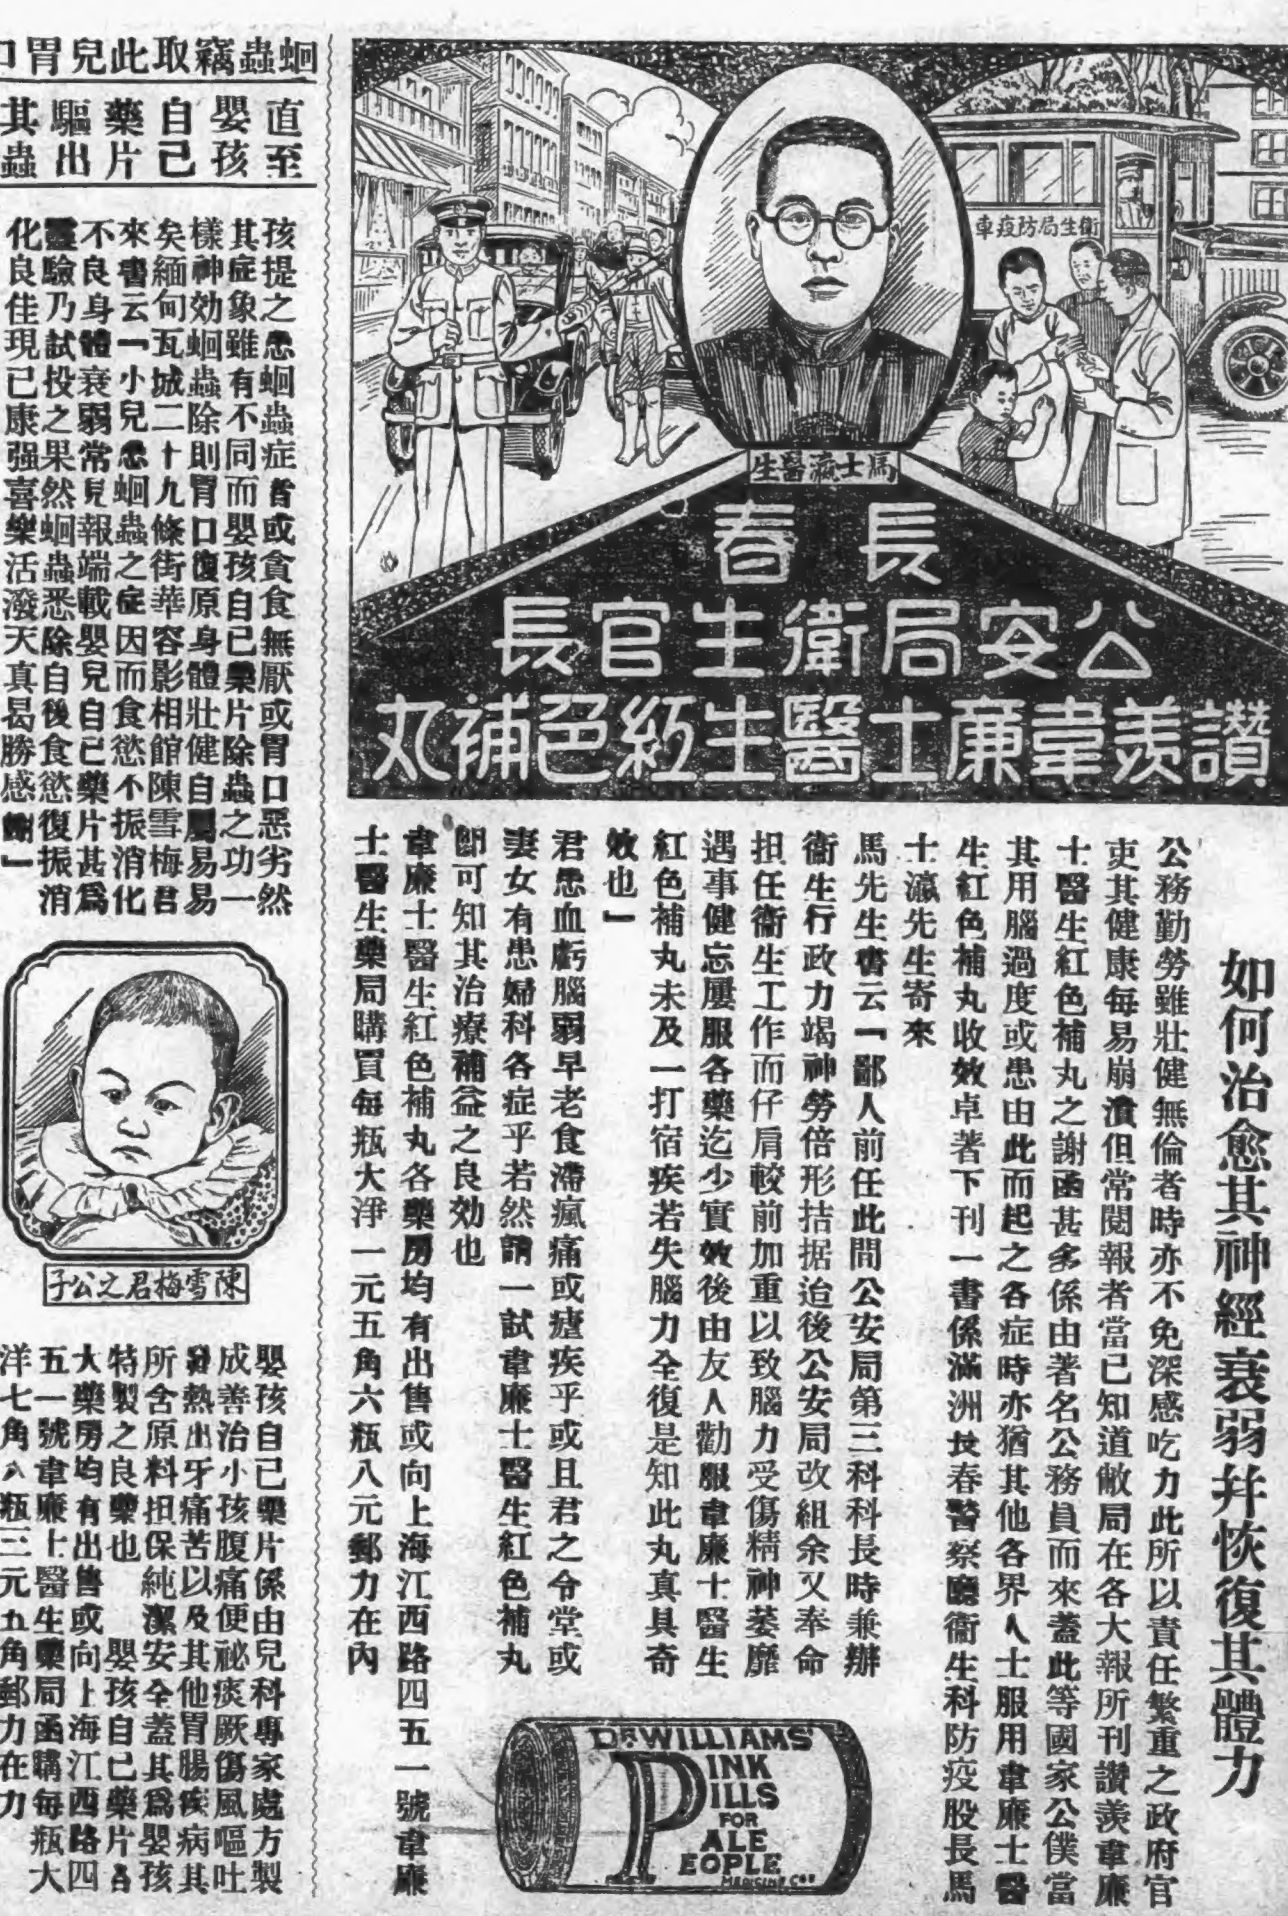 衛生局防疫車
馬士瀛醫生
長春
公安局衛生官長
讚羨韋廉士醫生紅色補丸
如何治愈其神經衰弱幷恢復其體力
公務勤勞雖壯健無倫者時亦不免深感吃力此所以責任繁重之政府官
吏其健康每易崩潰但常閱報者當已知道敝局在各大報所刊讚羨韋廉
士醫生紅色補丸之謝函甚多係由著名公務員而來蓋此等國家公僕當
其用腦過度或患由此而起之各症時亦猶其他各界人士服用韋廉士醫
生紅色補丸收效卓著下刊一書係滿洲長春警察廳衞生科防疫股長馬
士瀛先生寄來
馬先生書云「鄙人前任此間公安局第三科科長時兼辦
衞生行政力竭神勞倍形拮据迨後公安局改組余又奉命
担任衞生工作而仔肩較前加重以致腦力受傷精神萎靡
遇事健忘屢服各藥迄少實效後由友人勸服韋廉士醫生
紅色補丸未及一打宿疾若失腦力全復是知此丸真具奇
效也」
君患血虧腦弱早老食滯瘋痛或瘧疾乎或且君之令堂或
妻女有患婦科各症乎若然請一試韋廉士醫生紅色補丸
卽可知其治療補益之良効也
韋廉士醫生紅色補丸各藥房均有出售或向上海江西路四五一號韋廉
士醫生藥局購買每瓶大洋一元五角六瓶八元郵力在內
DR WILLIAMS'
PINK
PILLS
FOR
PALE
PEOPLE
MEDICINE Co
蛔蟲竊取此兒胃口
直至
嬰孩
自己
藥片
驅出
其蟲
孩提之患蛔蟲症者或貪食無厭或胃口惡劣然
其症象雖有不同而嬰孩自己藥片除蟲之功一
樣神効蛔蟲除則胃口復原身體壯健自屬易易
矣緬甸瓦城二十九條街華容影相館陳雪梅君
來書云「小兒患蛔蟲之症因而食慾不振消化
不良身體衰弱常見報端載嬰兒自己藥片甚爲
靈驗乃試投之果然蛔蟲悉除自後食慾復振消
化良佳現已康强喜樂活潑天真曷勝感謝」
陳雪梅君之公子
嬰孩自己藥片係由兒科專家處方製
成善治小孩腹痛便祕痰厥傷風嘔吐
發熱出牙痛苦以及其他胃腸疾病其
所含原料担保純潔安全蓋其爲嬰孩
特製之良藥也　嬰孩自己藥片各
大藥房均有出售或向上海江西路四
五一號韋廉士醫生藥局函購每瓶大
洋七角八瓶三元五角郵力在內